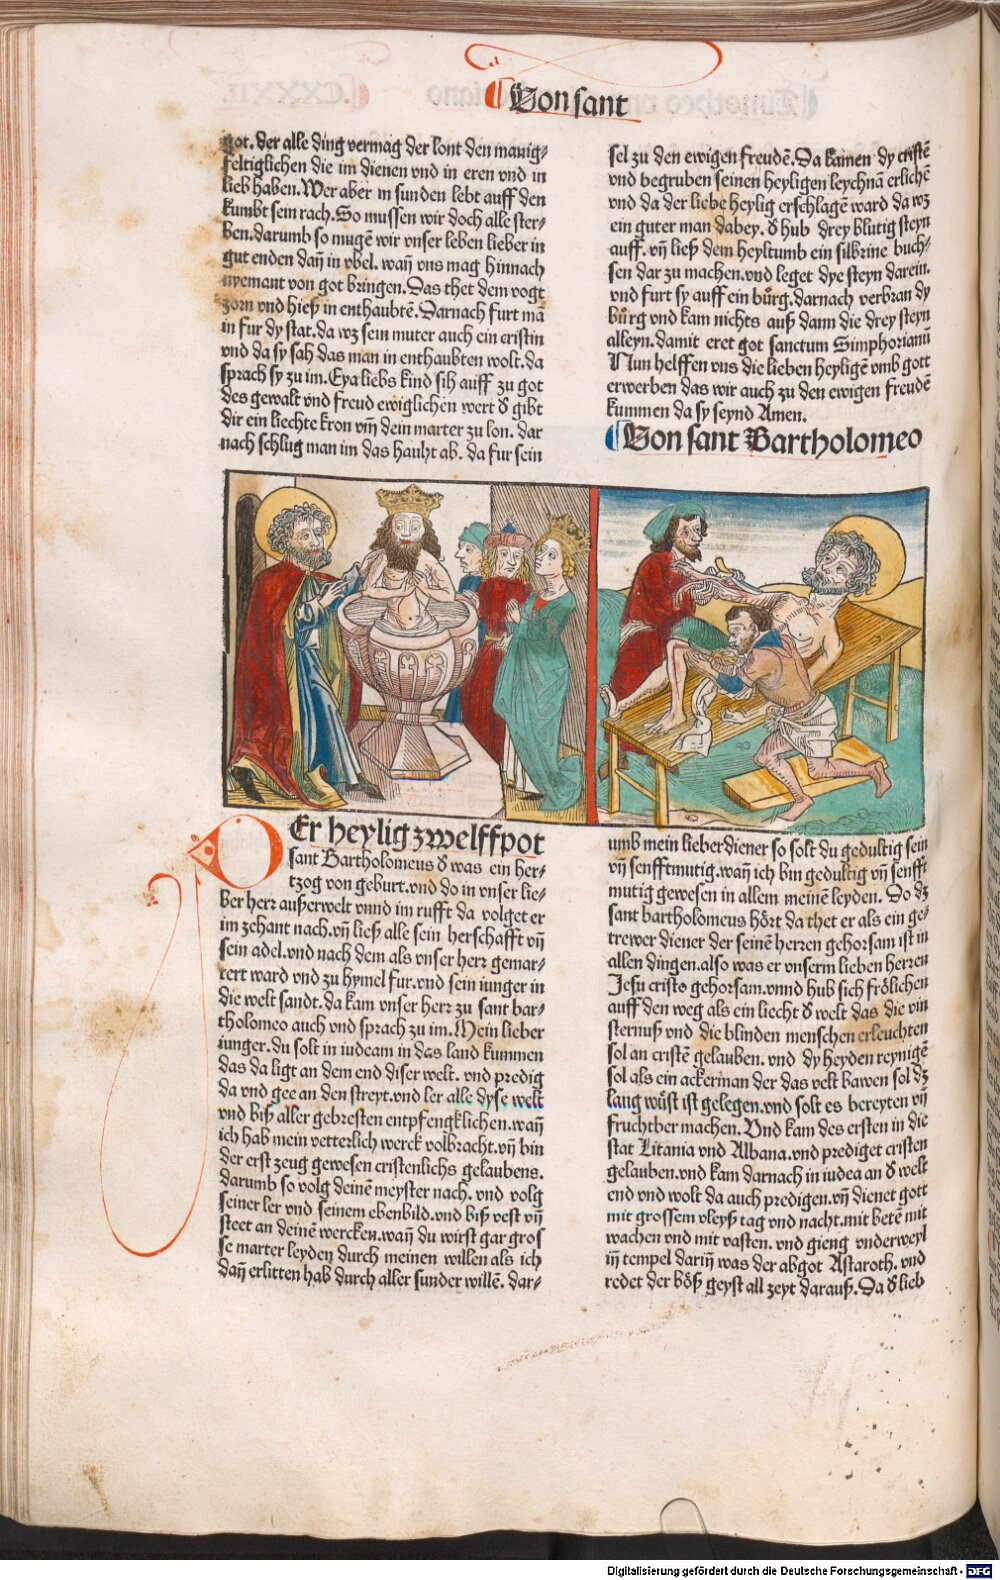 Von sant
got. der alle ding vermag der lont den manig⸗
feltiglichen die im dienen vnd in eren vnd in
lieb haben. Wer aber in sunden lebt auff den
kumbt sein rach. So mussen wir doch alle ster⸗
ben. darumb so mugē wir vnser leben lieber in
gut enden dañ in vbel. wañ vns mag hinnach
nyemant von got bringen. Das thet dem vogt
zorn vnd hieß in enthaubtē. Darnach furt mā
in fur dy stat. da wz sein muter auch ein cristin
vnd da sy sah das man in enthaubten wolt. da
sprach sy zu im. Eya liebs kind sih auff zu got
des gewalt vnd freud ewiglichen wert đ gibt
dir ein liechte kron vm̃ dein marter zu lon. dar
nach schlug man im das haubt ab. da fur sein
sel zu den ewigen freudē. Da kamen dy cristē
vnd begruben seinen heyligen leychnā erlichē
vnd da der liebe heylig erschlagē ward da wz
ein guter man dabey. đ hub drey blutig steyn
auff. vñ ließ dem heyltumb ein silbrine buch⸗
sen dar zu machen. vnd leget dye steyn darein.
vnd furt sy auff ein bůrg. darnach verbran dy
bůrg vnd kam nichts auß dann die drey steyn
alleyn. damit eret got sanctum Simphorianū
Nun helffen vns die lieben heyligē vmb gott
erwerben das wir auch zu den ewigen freudē
kummen da sy seynd Amen.
Von sant Bartholomeo
DEr heylig zwelffpot
sant Bartholomeus đ was ein her⸗
tzog von geburt. vnd do in vnser lie⸗
ber herr außerwelt vnnd im rufft da volget er
im zehant nach. vñ ließ alle sein herschafft vñ
sein adel. vnd nach dem als vnser herr gemar⸗
tert ward vnd zu hymel fur. vnd sein iunger in
die welt sandt. da kam vnser herr zu sant bar⸗
tholomeo auch vnd sprach zu im. Mein lieber
iunger. du solt in iudeam in das land kummen
das da ligt an dem end diser welt. vnd predig
da vnd gee an den streyt. vnd ler alle dyse welt
vnd biß aller gebresten entpfengklichen. wañ
ich hab mein vetterlich werck volbracht. vñ bin
der erst zeug gewesen cristenlichs gelaubens.
darumb so volg deinē meyster nach. vnd volg
seiner ler vnd seinem ebenbild. vnd biß vest vñ
steet an deinē wercken. wañ du wirst gar gros
se marter leyden durch meinen willen als ich
dañ erlitten hab durch aller sunder willē. dar⸗
umb mein lieber diener so solt du gedultig sein
vñ senfftmutig. wañ ich bin gedultig vñ senfft
mutig gewesen in allem meinē leyden. Do dz
sant bartholomeus hört da thet er als ein ge⸗
trewer diener der seinē herren gehorsam ist in
allen dingen. also was er vnserm lieben herren
Jesu cristo gehorsam. vnnd hub sich frölichen
auff den weg als ein liecht đ welt das die vin
sternuß vnd die blinden menschen erleuchten
sol an cristē gelauben. vnd dy heyden reynigē
sol als ein ackerman der das velt bawen sol dz
lang wüst ist gelegen. vnd solt es bereyten vñ
fruchtber machen. Vnd kam des ersten in die
stat Litania vnd Albana. vnd prediget cristen
gelauben. vnd kam darnach in iudea an đ welt
end vnd wolt da auch predigen. vñ dienet gott
mit grossem vleyß tag vnd nacht. mit betē mit
wachen vnd mit vasten. vnd gieng vnderweyl
iñ tempel dariñ was der abgot Astaroth. vnd
redet der böß geyst all zeyt darauß. Da đ lieb
Digitalisierung gefördert durch die Deutsche Forschungsgemeinschaft - DFG